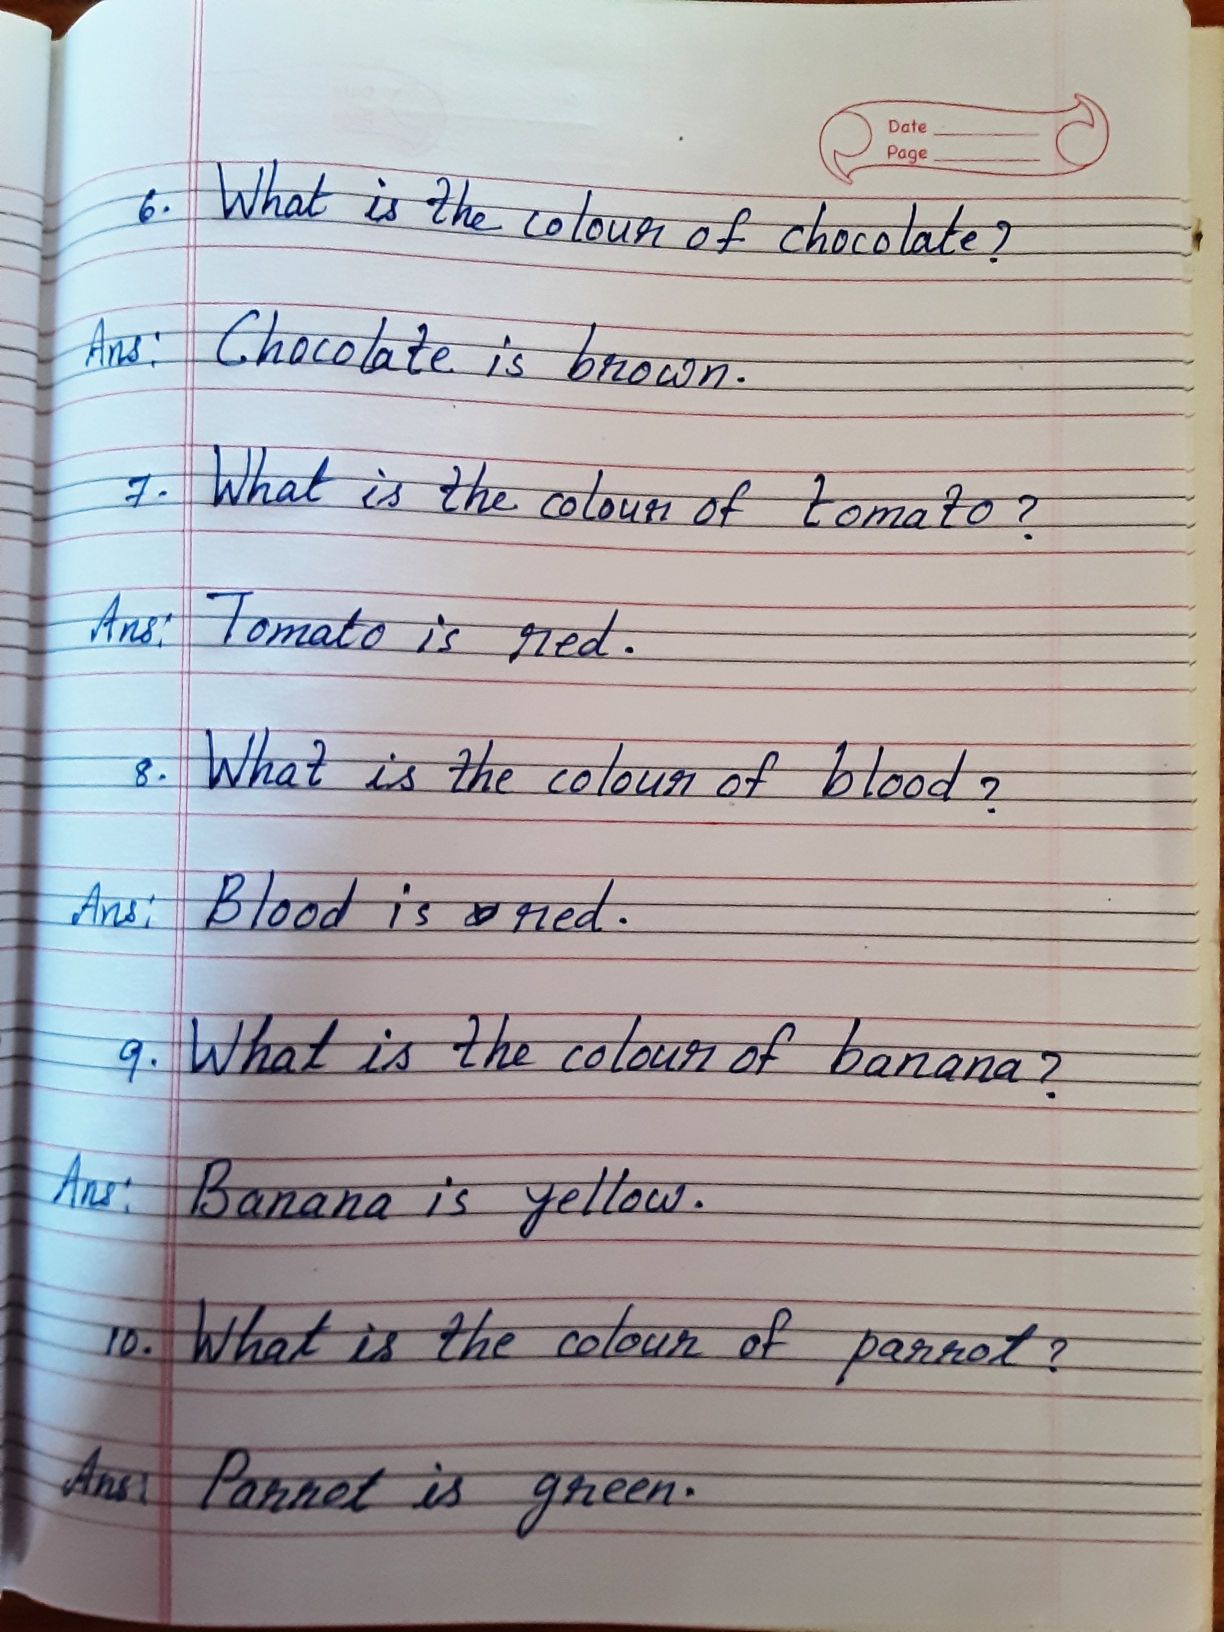 Date
Page
6. What is the colour of chocolate?
Ans: Chocolate is brown.
7. What is the colour of tomato?
Ans: Tomato is red.
8. What is the colour of blood?
Ans: Blood is red.
9. What is the colour of banana?
Ans: Banana is yellow.
10. What is the colour of parrot?
Ans: Parrot is green.